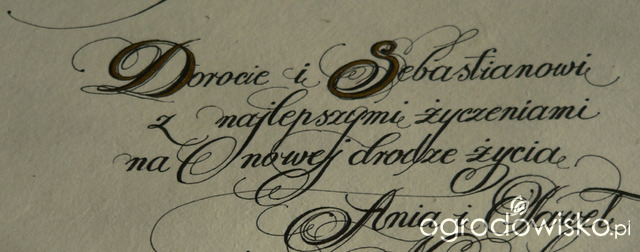 Dorocie i Sebastianowi
z najlepszymi życzeniami
na nowej drodze życia
Ania i Paweł
ogrodowisko.pl